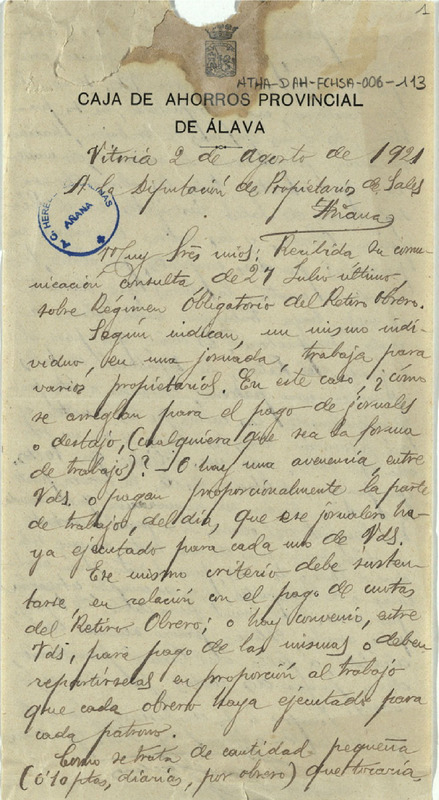 1
ATHA-DAH-FCHSA-006-113
CAJA DE AHORROS PROVINCIAL
DE ÁLAVA
Vitoria 2 de agosto de 1921
A la Diputación de Propietarios de Sales
Añana
AÑANA
Muy Srês mios: Recibida su comu-
nicación consulta de 27 Julio último,
sobre Régimen Obligatorio del Retiro Obrero.
Según indican, un mismo indi-
viduo, en una jornada trabaja para
varios propietarios. En este caso, ¿cómo
se arreglan para el pago de jornales
o destajo, (cualquiera que sea la forma
de trabajo)? O hay una avenencia, entre
Vds. o pagan proporcionalmente la parte
de trabajo, del día, que ese jornalero ha-
ya ejecutado para cada uno de Vds.
Ese mismo criterio debe susten-
tarse, en relación con el pago de cuotas
del Retiro Obrero; o hay convenio, entre
Vds, para pago de las mismas o deben
repartírselas en proporción al trabajo
que cada obrero haya ejecutado para
cada patrono.
Como se trata de cantidad pequeña
(0'10 ptas, diarias, por obrero) que tocaría,